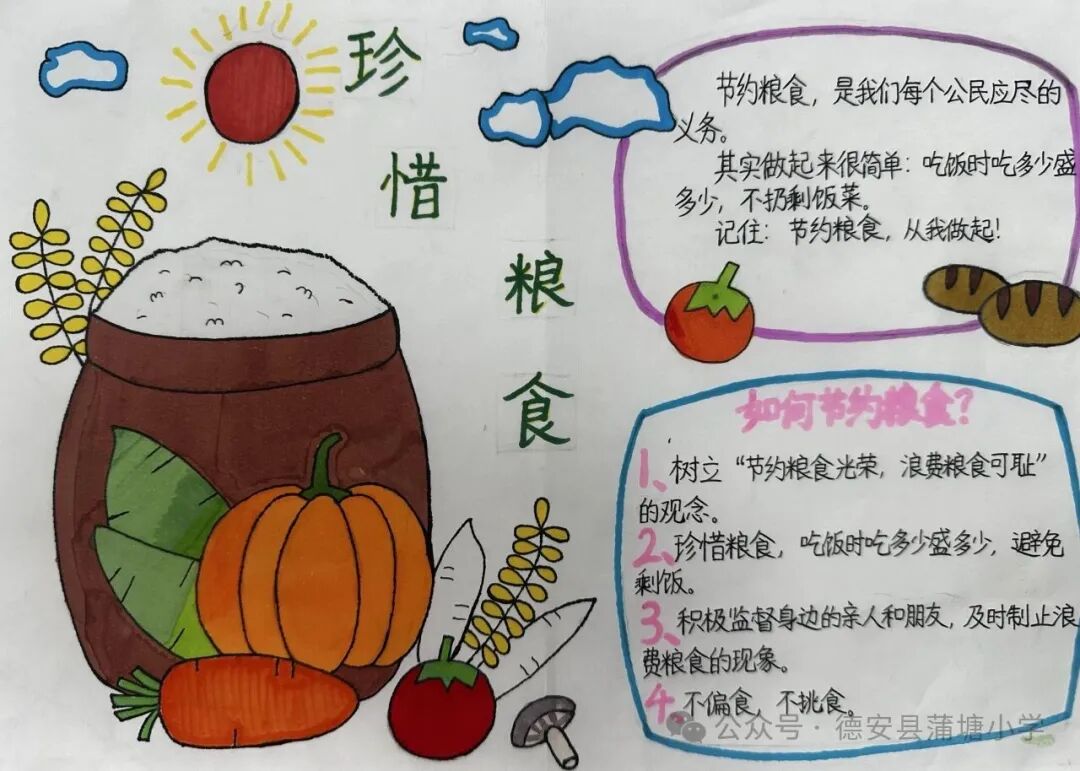 珍惜粮食
节约粮食，是我们每个公民应尽的
义务。
其实做起来很简单：吃饭时吃多少盛
多少，不扔剩饭菜。
记住：节约粮食，从我做起！
如何节约粮食？
1、树立“节约粮食光荣，浪费粮食可耻”
的观念。
2、珍惜粮食，吃饭时吃多少盛多少，避免
剩饭。
3、积极监督身边的亲人和朋友，及时制止浪
费粮食的现象。
4、不偏食，不挑食。
公众号·德安县蒲塘小学